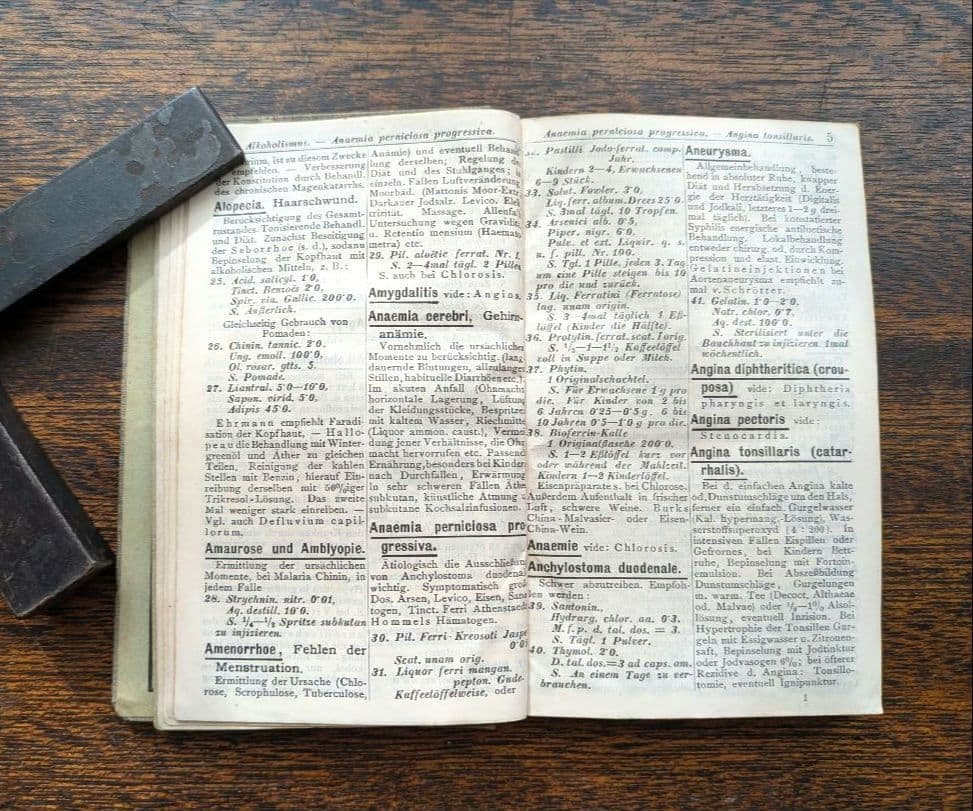 Alkoholismus. — Anaemia perniciosa progressiva.
ist zu diesem Zwecke
empfehlen. — Verbesserung
der Konstitution durch Behandl.
des chronischen Magenkatarrhs.
Alopecia. Haarschwund.
Berücksichtigung des Gesamt-
zustandes. Tonisierende Behandl.
und Diät. Zunächst Beseitigung
der Seborrhoe (s. d.), sodann
Bepinselung der Kopfhaut mit
alkoholischen Mitteln, z. B.:
25. Acid. salicyl. 1·0,
Tinct. Benzoës 2·0,
Spir. vin. Gallic. 200·0.
S. Äußerlich.
Gleichzeitig Gebrauch von
Pomaden:
26. Chinin. tannic. 2·0,
Ung. emoll. 100·0,
Ol. rosar. gtts. 5.
S. Pomade.
27. Liantral. 5·0—10·0,
Sapon. virid. 5·0,
Adipis 45·0.
Ehrmann empfiehlt Faradi-
sation der Kopfhaut, — Hallo-
peau die Behandlung mit Winter-
greenöl und Äther zu gleichen
Teilen, Reinigung der kahlen
Stellen mit Benzin, hierauf Ein-
reibung derselben mit 50%iger
Trikresol-Lösung. Das zweite
Mal weniger stark einreiben. —
Vgl. auch Defluvium capil-
lorum.
Amaurose und Amblyopie.
Ermittlung der ursächlichen
Momente, bei Malaria Chinin, in
jedem Falle
28. Strychnin. nitr. 0·01,
Aq. destill. 10·0.
S. ¼—½ Spritze subkutan
zu injizieren.
Amenorrhoe, Fehlen der
Menstruation.
Ermittlung der Ursache (Chlo-
rose, Scrophulose, Tuberculose,
Anämie) und eventuell Behand
lung derselben; Regelung de
Diät und des Stuhlganges; in
einzeln. Fällen Luftveränderung
Moorbäd. (Mattonis Moor-Extr.
Darkauer Jodsalz. Levico. Elek
trizität. Massage. Allenfal
Untersuchung wegen Gravidit
u. Retentio mensium (Haemato
metra) etc.
29. Pil. aloëtic ferrat. Nr. 1.
S. 2—4mal tägl. 2 Pillen
S. auch bei Chlorosis.
Amygdalitis vide: Angina.
Anaemia cerebri, Gehirn-
anämie.
Vornehmlich die ursächlichen
Momente zu berücksichtig. (lang
dauernde Blutungen, allzulanges
Stillen, habituelle Diarrhöen etc.).
Im akuten Anfall (Ohnmacht
horizontale Lagerung, Lüftung
der Kleidungsstücke, Bespritzen
mit kaltem Wasser, Riechmitte
(Liquor ammon. caust.), Vermei
dung jener Verhältnisse, die Oh
macht hervorrufen etc. Passend
Ernährung, besonders bei Kinder
nach Durchfällen, Erwärmung
In sehr schweren Fällen Äthe
subkutan, künstliche Atmung
subkutane Kochsalzinfusionen.
Anaemia perniciosa pro
gressiva.
Ätiologisch die Ausschließun
von Anchylostoma duodenal
wichtig. Symptomatisch groß
Dos. Arsen, Levico, Eisen, San
togen, Tinct. Ferri Athenstaedt
Hommels Hämatogen.
30. Pil. Ferri-Kreosoti Jaspe
0·0
Scat. unam orig.
31. Liquor ferri mangan.
pepton. Gude-
Kaffeelöffelweise, oder
Anaemia perniciosa progressiva. — Angina tonsillaris. 5
32. Pastilli Jodo-ferrat. comp.
Jahr.
Kindern 2—4, Erwachsenen
6—9 Stück.
33. Solut. Fowler. 3·0,
Liq. ferr. album. Drees 25·0.
S. 3mal tägl. 10 Tropfen.
34. Arsenici alb. 0·5,
Piper. nigr. 6·0,
Pulv. et ext. Liquir. q. s.
u. f. pill. Nr. 100.
S. Tgl. 1 Pille, jeden 3. Tag
um eine Pille steigen bis 10
pro die und zurück.
35. Liq. Ferratini (Ferratose)
lag. unam origin.
S. 3—4mal täglich 1 Eß-
löffel (Kinder die Hälfte).
36. Protylin. ferrat. scat. I orig.
S. ½—1—1½ Kaffeelöffel
voll in Suppe oder Milch.
37. Phytin.
1 Originalschachtel.
S. Für Erwachsene 1 g pro
die. Für Kinder von 2 bis
6 Jahren 0·25—0·5 g, 6 bis
10 Jahren 0·5—1·0 g pro die.
38. Bioferrin-Kalle
1 Originalflasche 200·0.
S. 1—2 Eßlöffel kurz vor
oder während der Mahlzeit.
Kindern 1—2 Kinderlöffel.
Eisenpräparate s. bei Chlorose.
Außerdem Aufenthalt in frischer
Luft, schwere Weine. Burks
China-Malvasier- oder Eisen-
China-Wein.
Anaemie vide: Chlorosis.
Anchylostoma duodenale.
Schwer abzutreiben. Empfoh-
len werden:
39. Santonin.,
Hydrarg. chlor. aa. 0·3.
M. f. p. d. tal. dos. = 3.
S. Tägl. 1 Pulver.
40. Thymol. 2·0.
D. tal. dos. = 3 ad caps. am.
S. An einem Tage zu ver-
brauchen.
Aneurysma.
Allgemeinbehandlung, beste-
hend in absoluter Ruhe, knapper
Diät und Herabsetzung d. Ener-
gie der Herztätigkeit (Digitalis
und Jodkali, letzteres 1—2 g drei-
mal täglich). Bei konstatierter
Syphilis energische antiluetische
Behandlung. Lokalbehandlung
entweder chirurg. od. durch Kom-
pression und elast. Einwicklung.
Gelatineinjektionen bei
Aortenaneurysma empfiehlt zu-
mal v. Schrötter.
41. Gelatin. 1·0—2·0,
Natr. chlor. 0·7,
Aq. dest. 100·0.
S. Sterilisiert unter die
Bauchhaut zu injizieren 1mal
wöchentlich.
Angina diphtheritica (crou-
posa) vide: Diphtheria
pharyngis et laryngis.
Angina pectoris vide:
Stenocardia.
Angina tonsillaris (catar-
rhalis).
Bei d. einfachen Angina kalte
od. Dunstumschläge um den Hals,
ferner ein einfach. Gurgelwasser
(Kal. hypermang.-Lösung), Was-
serstoffsuperoxyd (4 : 200). In
intensiven Fällen Eispillen oder
Gefrornes, bei Kindern Bett-
ruhe, Bepinselung mit Fortoin-
emulsion. Bei Abszeßbildung
Dunstumschläge, Gurgelungen
m. warm. Tee (Decoct. Althaeae
od. Malvae) oder ½—1% Alsol-
lösung, eventuell Inzision. Bei
Hypertrophie der Tonsillen Gur-
geln mit Essigwasser u. Zitronen-
saft, Bepinselung mit Jodtinktur
oder Jodvasogen 6%; bei öfterer
Rezidive d. Angina: Tonsillo-
tomie, eventuell Ignipunktur.
1